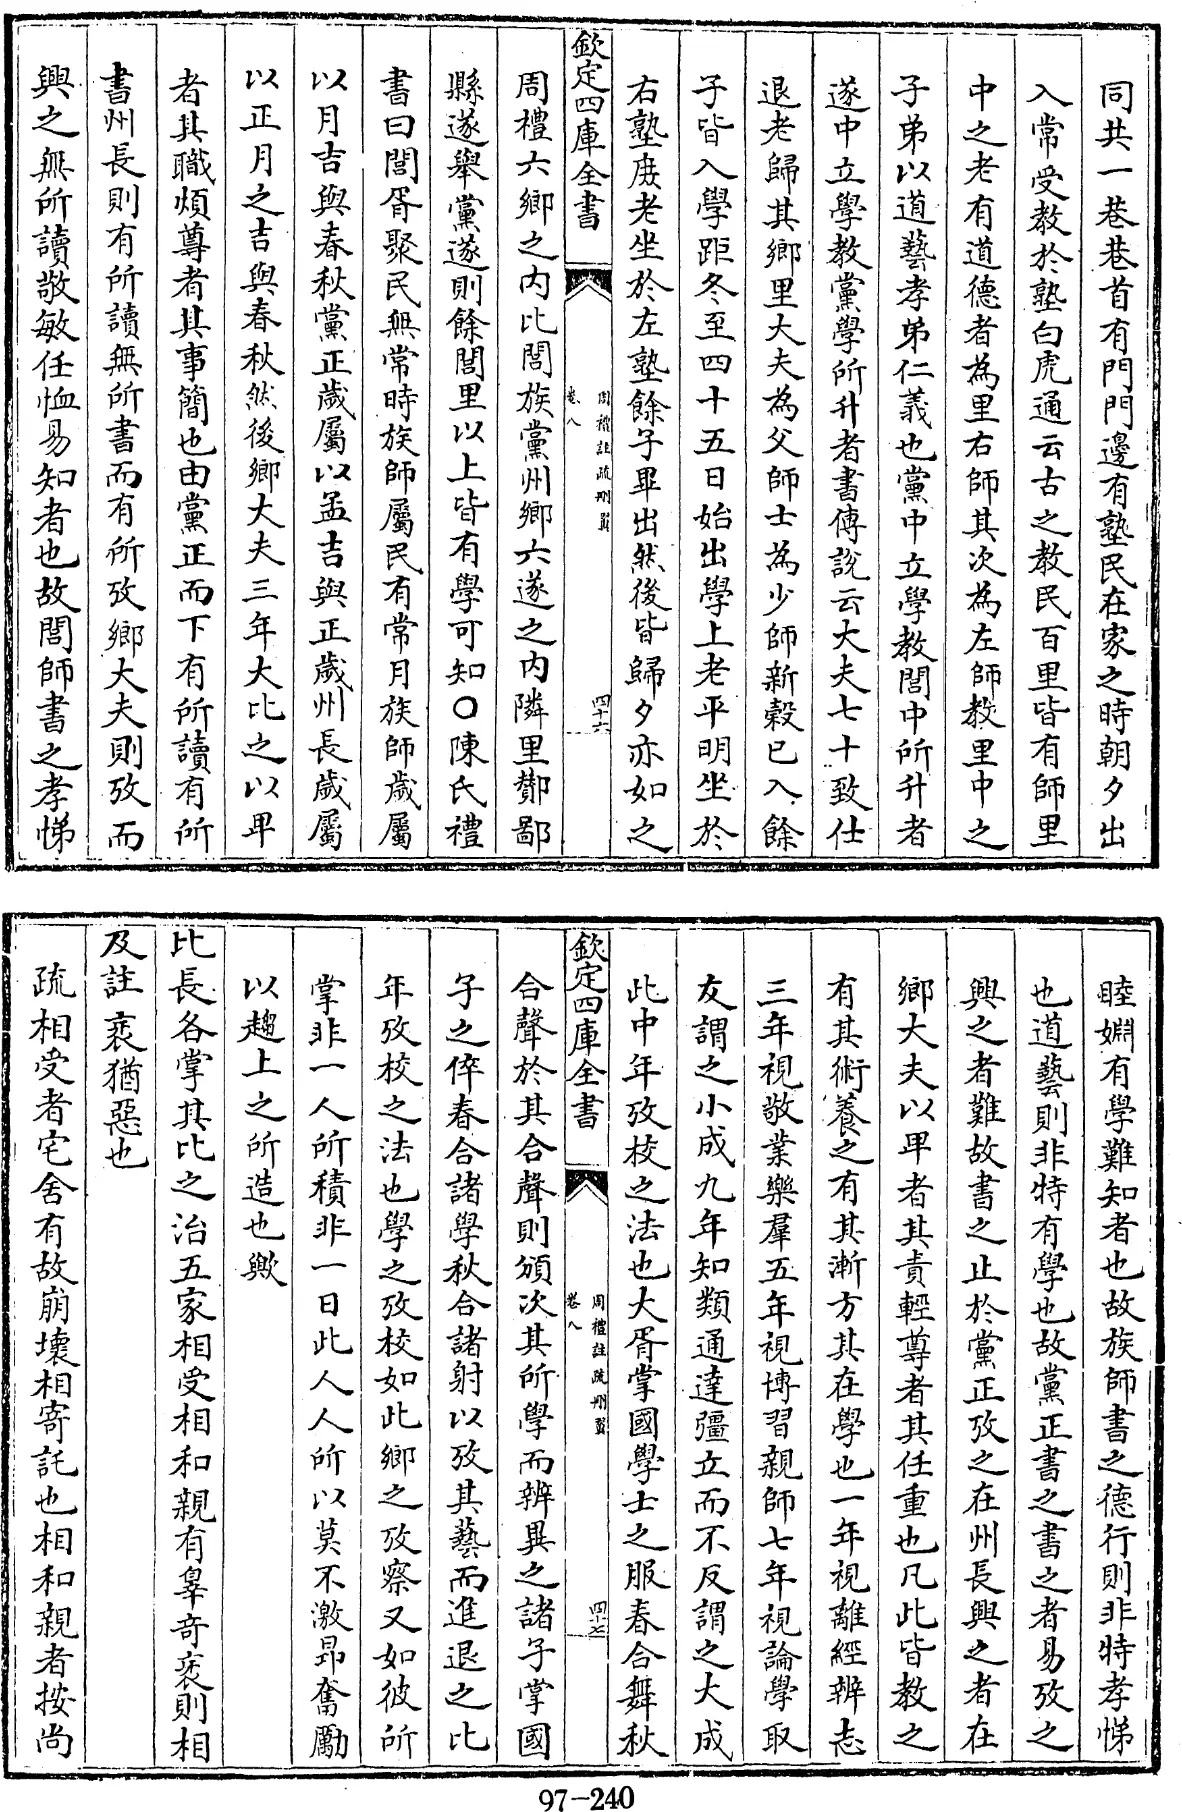 同共一巷巷首有門門邊有塾民在家之時朝夕出
入常受教於塾白虎通云古之教民百里皆有師里
中之老有道德者為里右師其次為左師教里中之
子弟以道藝孝弟仁義也黨中立學教閭中所升者
遂中立學教黨學所升者書傳說云大夫七十致仕
退老歸其鄉里大夫為父師士為少師新穀已入餘
子皆入學距冬至四十五日始出學上老平明坐於
右塾庻老坐於左塾餘子畢出然後皆歸夕亦如之
欽定四庫全書
周禮註疏刪翼
卷八
四十六
周禮六鄉之内比閭族黨州鄉六遂之内隣里酇鄙
縣遂舉黨遂則餘閭里以上皆有學可知○陳氏禮
書曰閭胥聚民無常時族師屬民有常月族師歲屬
以月吉與春秋黨正歲屬以孟吉與正歲州長歲屬
以正月之吉與春秋然後鄉大夫三年大比之以卑
者其職煩尊者其事簡也由黨正而下有所讀有所
書州長則有所讀無所書而有所攷鄉大夫則攷而
興之無所讀敬敏任恤易知者也故閭師書之孝悌
睦婣有學難知者也故族師書之德行則非特孝悌
也道藝則非特有學也故黨正書之書之者易攷之
興之者難故書之止於黨正攷之在州長興之者在
鄉大夫以卑者其責輕尊者其任重也凡此皆教之
有其術養之有其漸方其在學也一年視離經辨志
三年視敬業樂羣五年視博習親師七年視論學取
友謂之小成九年知類通達彊立而不反謂之大成
此中年攷校之法也大胥掌國學士之版春合舞秋
欽定四庫全書
周禮註疏刪翼
卷八
四十七
合聲於其合聲則頒次其所學而辨異之諸子掌國
子之倅春合諸學秋合諸射以攷其藝而進退之比
年攷校之法也學之攷校如此鄉之攷察又如彼所
掌非一人所積非一日此人人所以莫不激昻奮勵
以趨上之所造也歟
比長各掌其比之治五家相受相和親有辠奇衺則相
及註衺猶惡也
疏相受者宅舍有故崩壞相寄託也相和親者按尚
97-240